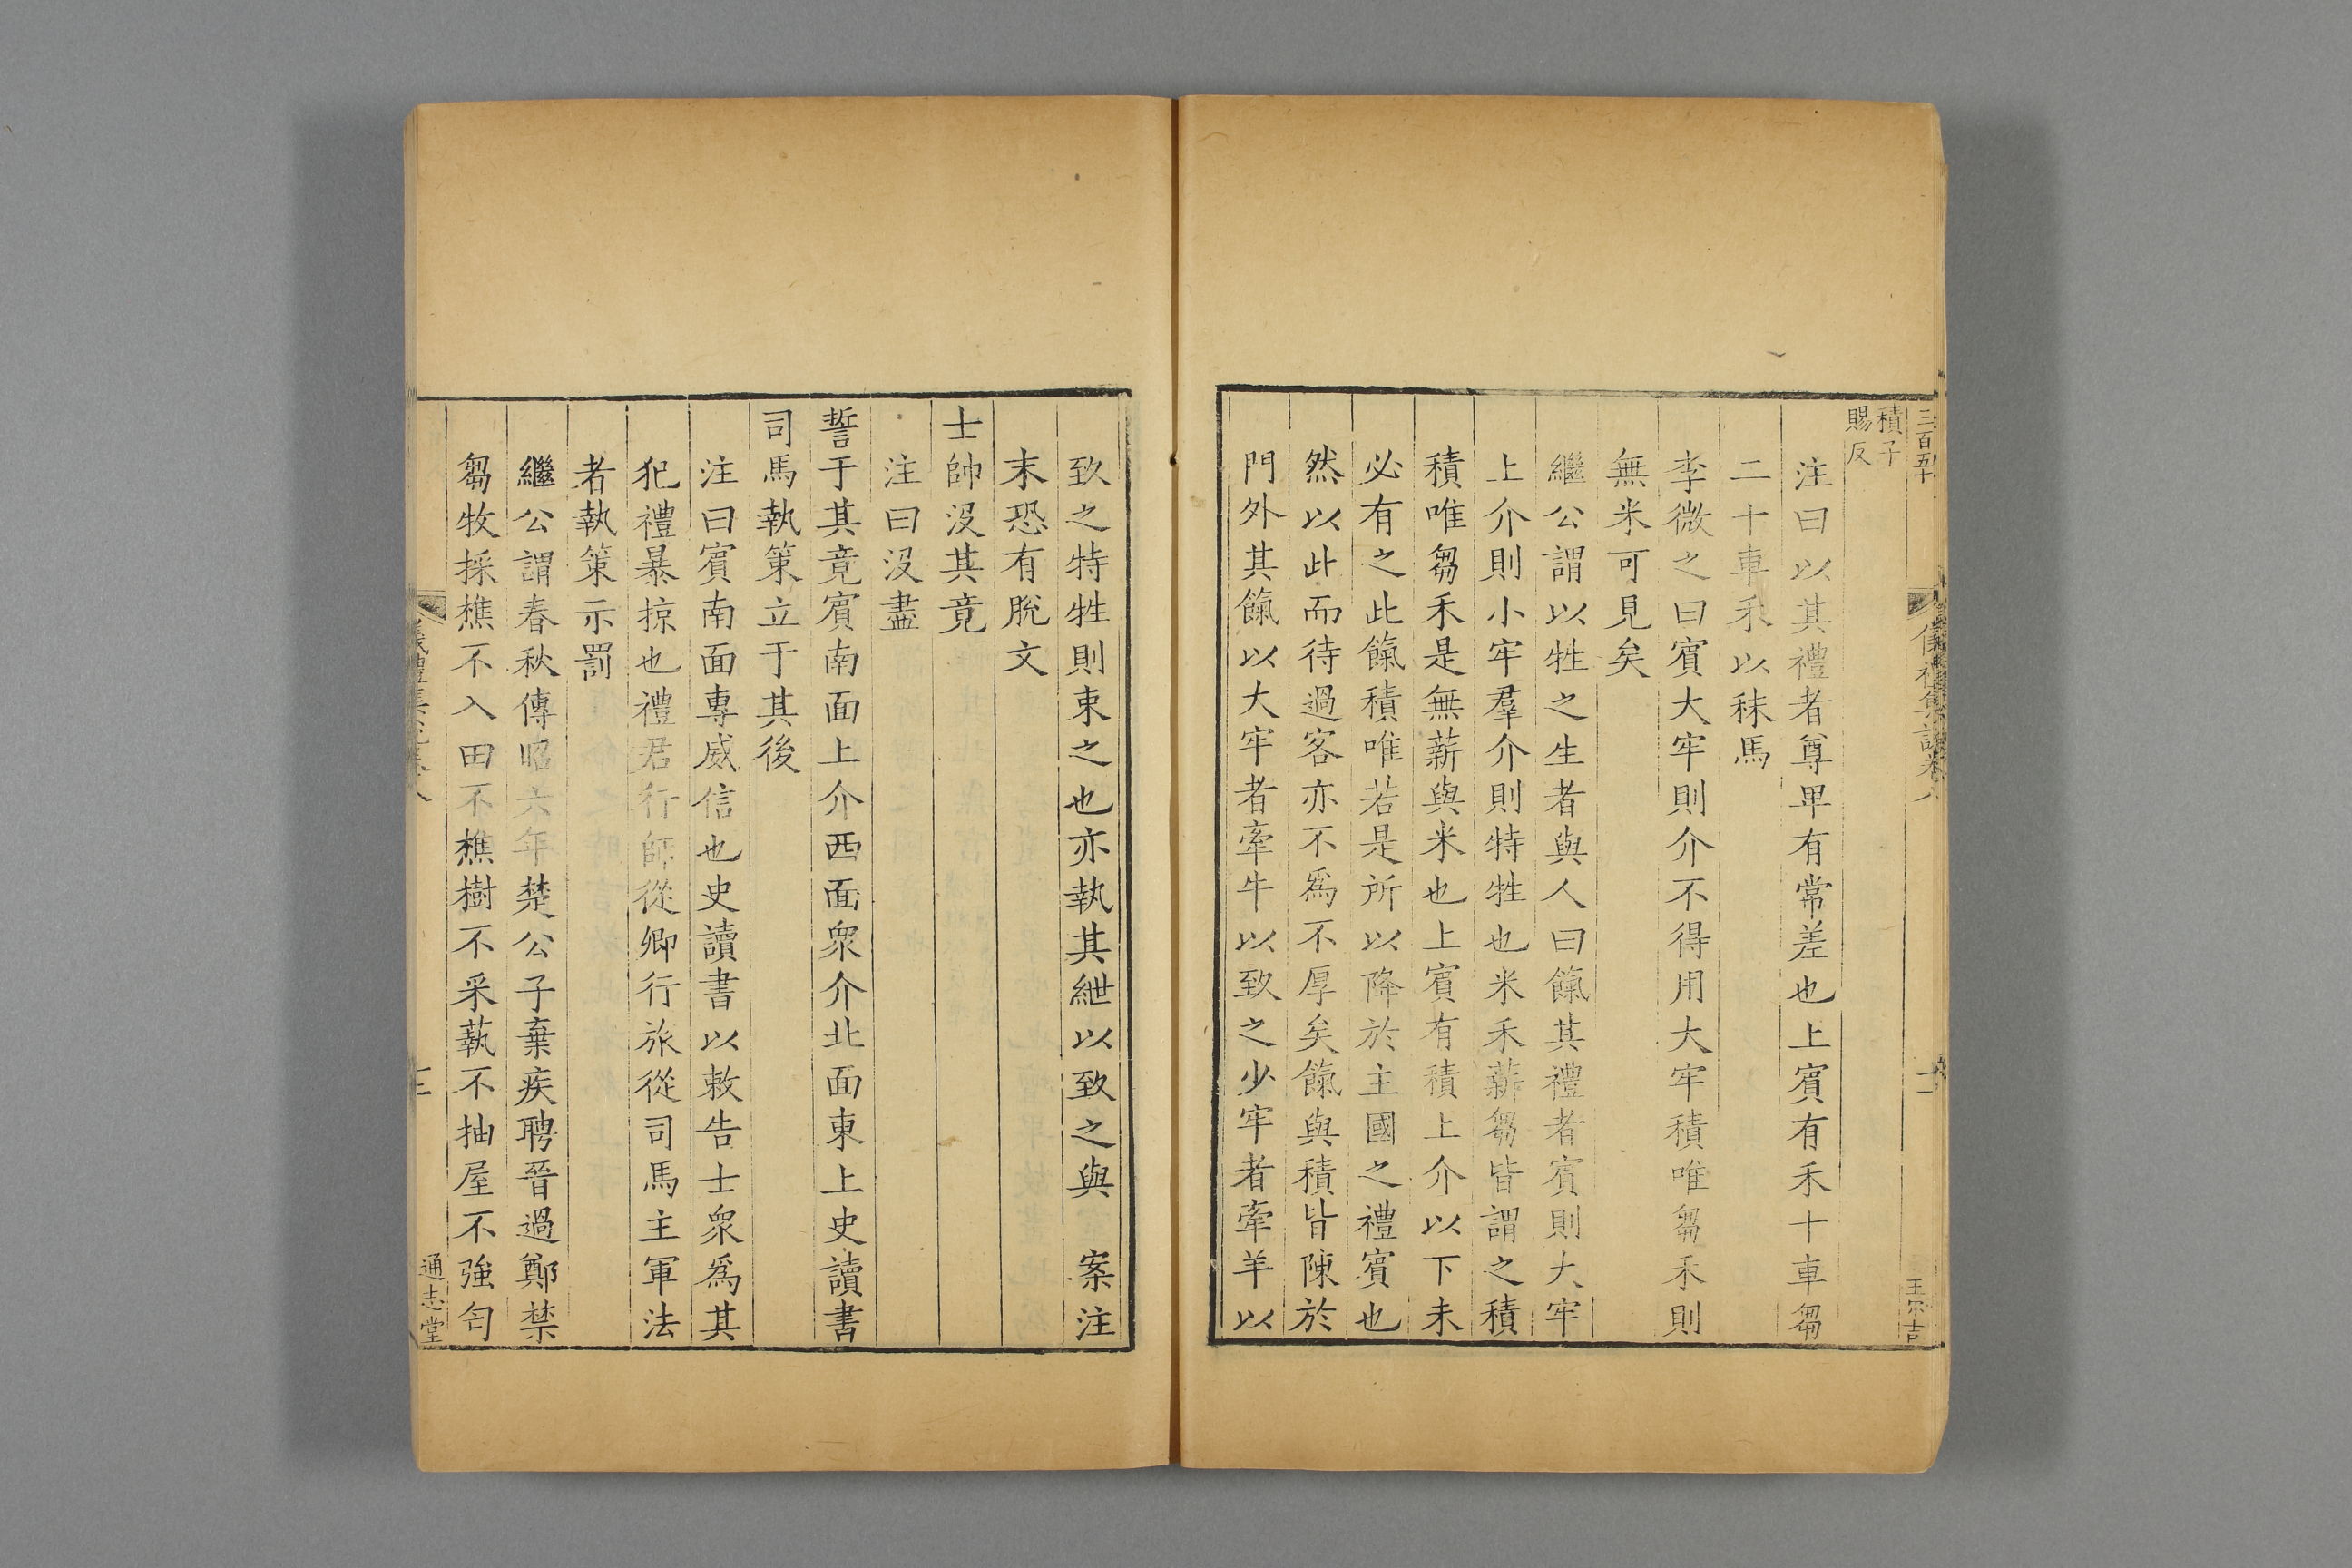 三百五十
儀禮集說卷八
王尔吉
積子
賜反
注曰以其禮者尊卑有常差也上賓有禾十車芻
二十車禾以秣馬
李微之曰賓大牢則介不得用大牢積唯芻禾則
無米可見矣
繼公謂以牲之生者與人曰餼其禮者賓則大牢
上介則小牢羣介則特牲也米禾薪芻皆謂之積
積唯芻禾是無薪與米也上賓有積上介以下未
必有之此餼積唯若是所以降於主國之禮賓也
然以此而待過客亦不爲不厚矣餼與積皆陳於
門外其餼以大牢者牽牛以致之少牢者牽羊以
致之特牲則束之也亦執其紲以致之與 案注
末恐有脫文
士帥沒其竟
注曰沒盡
誓于其竟賓南面上介西面衆介北面東上史讀書
司馬執策立于其後
注曰賓南面專威信也史讀書以敕告士衆爲其
犯禮暴掠也禮君行師從卿行旅從司馬主軍法
者執策示罰
繼公謂春秋傳昭六年楚公子棄疾聘晉過鄭禁
芻牧採樵不入田不樵樹不采蓺不抽屋不強匄
通志堂